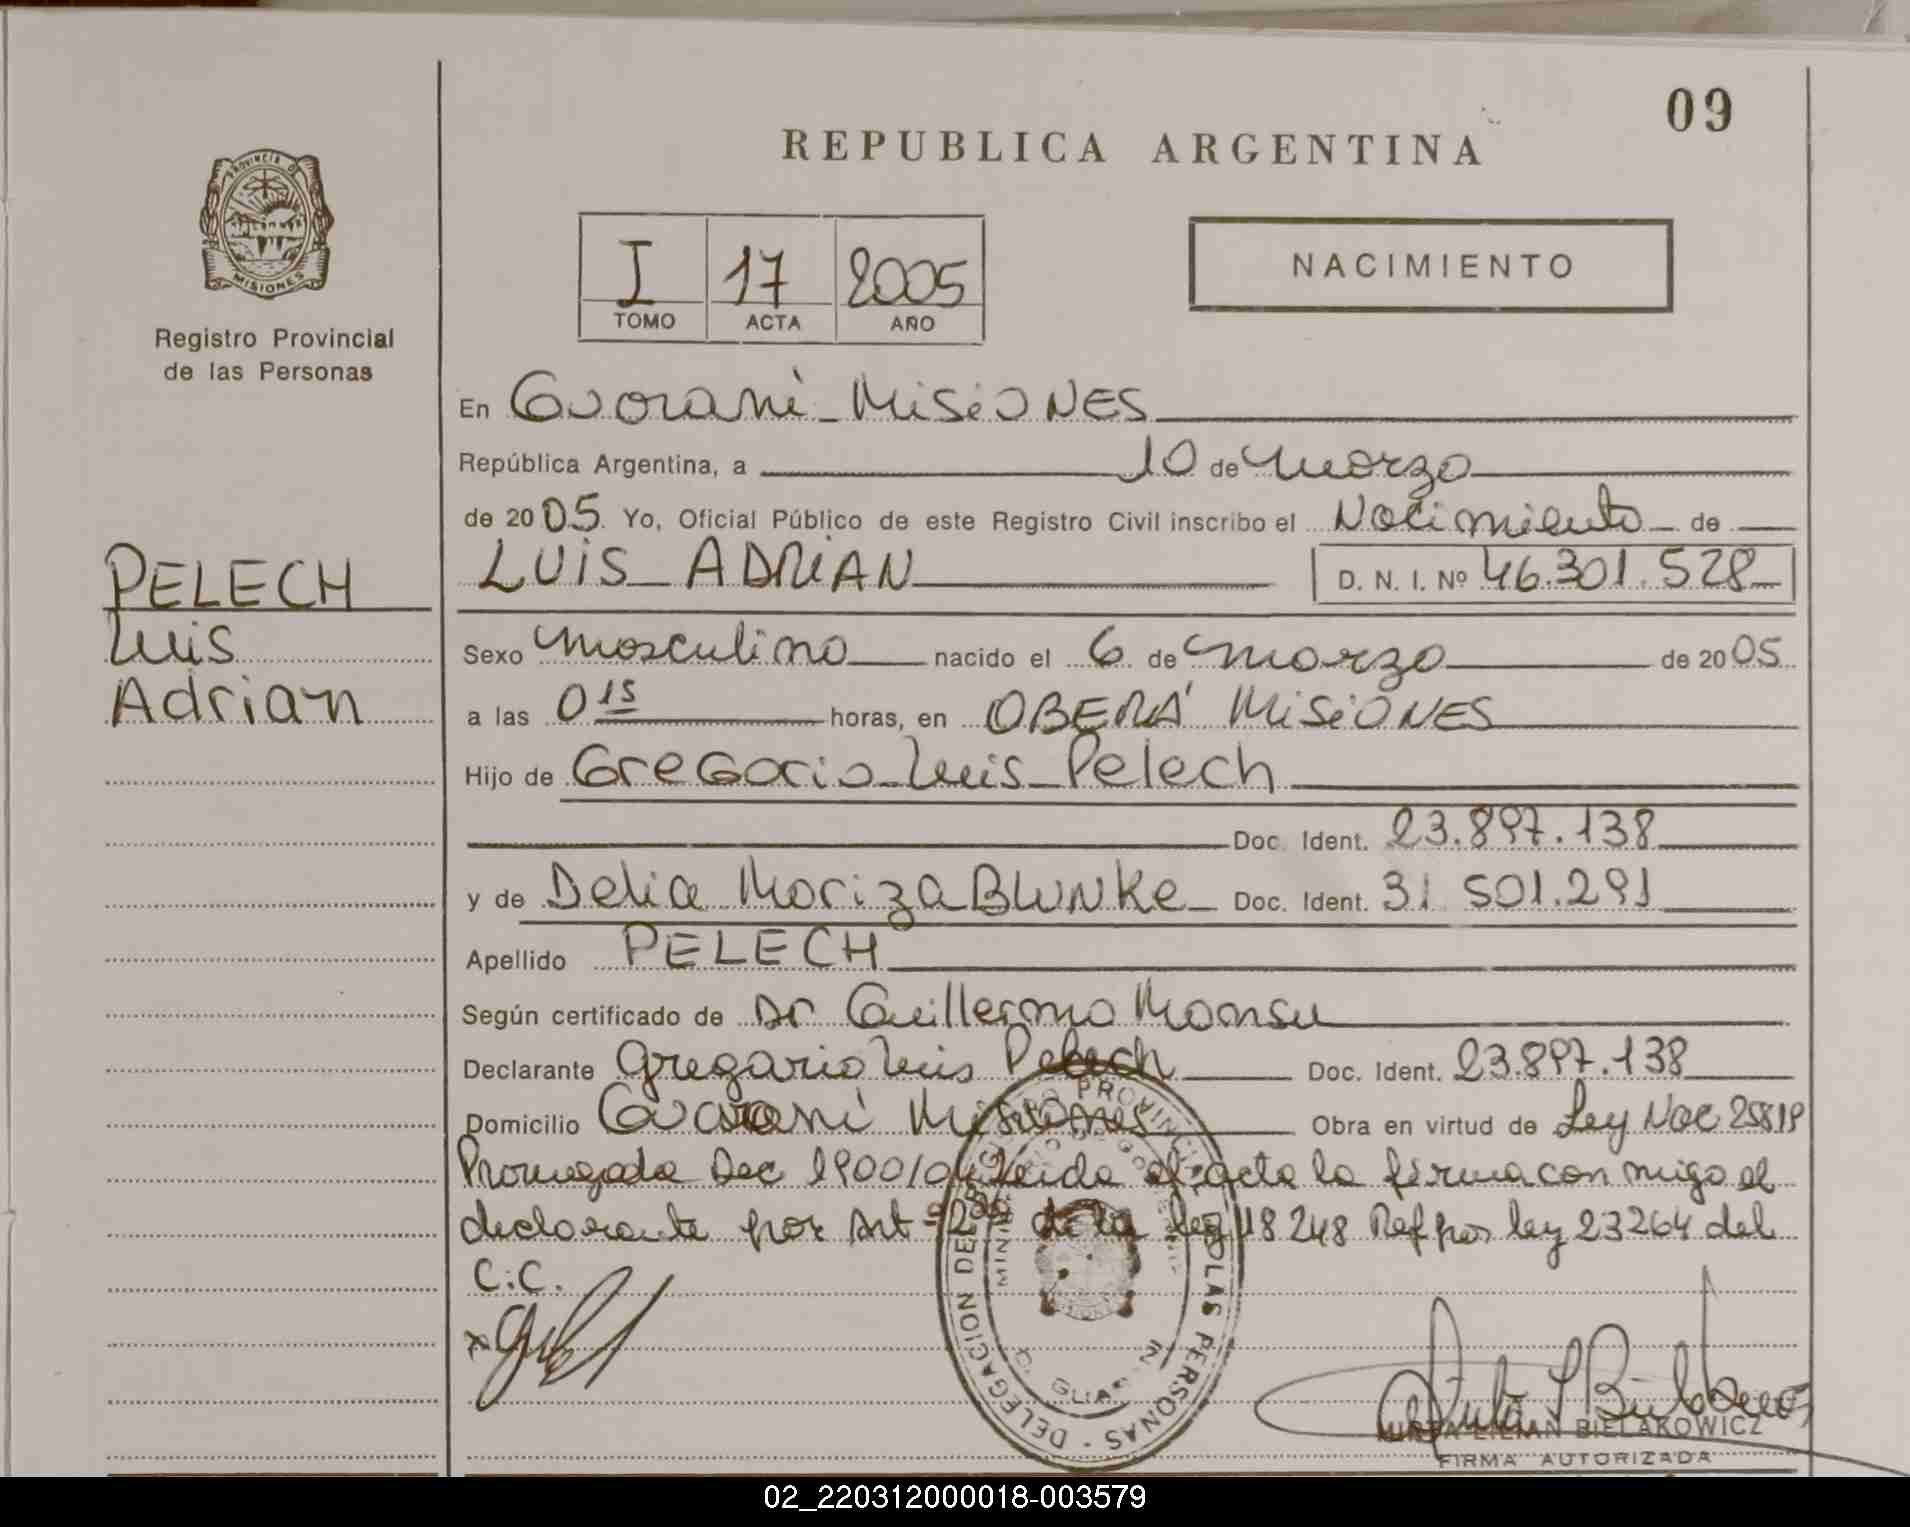 09
REPUBLICA ARGENTINA
PROVINCIA DE
MISIONES
Registro Provincial
de las Personas
I 17 2005
TOMO ACTA AÑO
NACIMIENTO
En Guaraní - Misiones
República Argentina, a 10 de Marzo
de 2005. Yo, Oficial Público de este Registro Civil inscribo el Nacimiento de
PELECH
Luis
Adrian
LUIS ADRIAN D. N. I. Nº 46.301.528
Sexo Masculino nacido el 6 de Marzo de 2005
a las 0 15 horas, en OBERÁ MISIONES
Hijo de Gregorio Luis Pelech
Doc. Ident. 23.897.138
y de Delia Mariza Blunke Doc. Ident. 31 501.291
Apellido PELECH
Según certificado de Dr Guillermo
Declarante Gregario Luis Pelech Doc. Ident. 23.897.138
Domicilio Guaraní Misiones Obra en virtud de Ley Nac 25819
Dec 1900/04 Leida el acta la firma con migo el
declarante por Art de la ley 18 248 Ref por ley 23264 del
C.C.
DELEGACION DEL REGISTRO PROVINCIAL DE LAS PERSONAS
MIRTA LILIAN BIELAKOWICZ
FIRMA AUTORIZADA
02_220312000018-003579